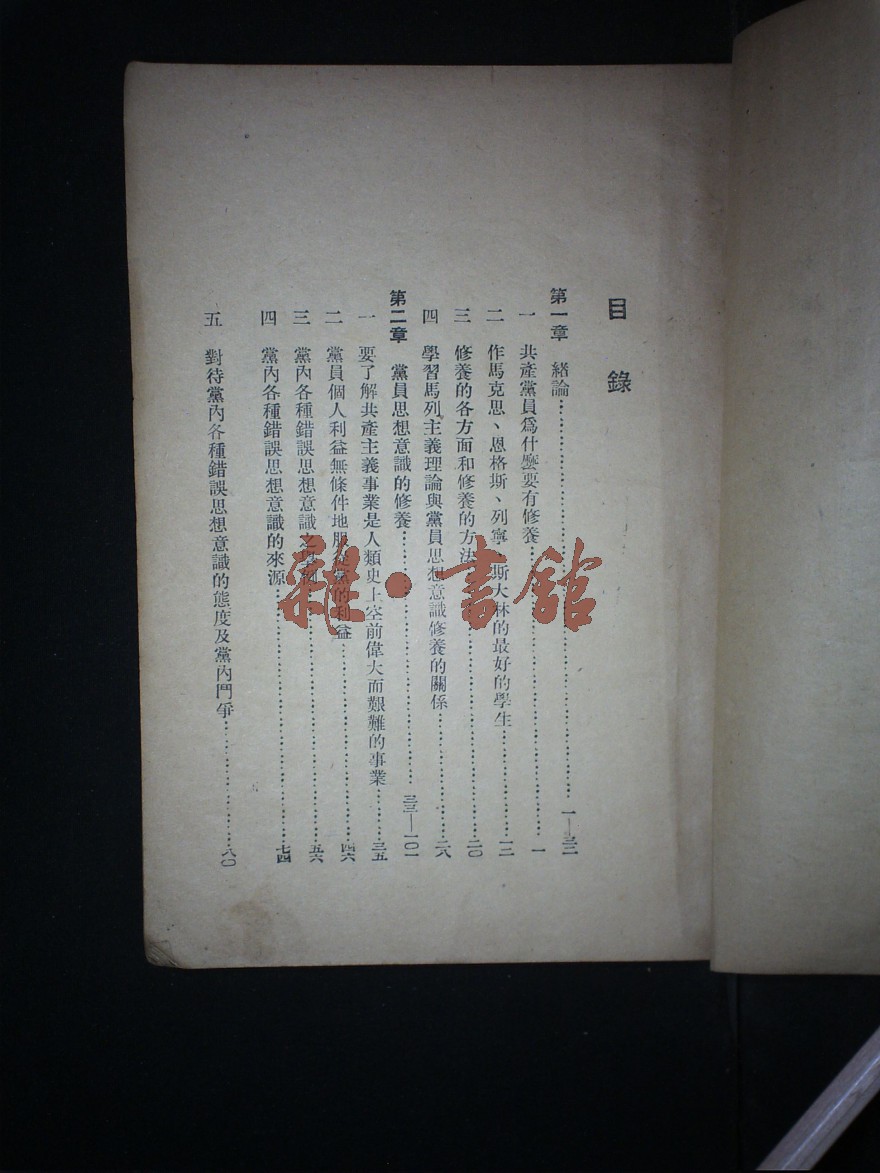 目錄
第一章 緒論……一—三二
一 共產黨員爲什麼要有修養……一
二 作馬克思、恩格斯、列寧、斯大林的最好的學生……一二
三 修養的各方面和修養的方法……二〇
四 學習馬列主義理論與黨員思想意識修養的關係……二八
第二章 黨員思想意識的修養……三三—一〇一
一 要了解共產主義事業是人類史上空前偉大而艱難的事業……三五
二 黨員個人利益無條件地服從黨的利益……四六
三 黨內各種錯誤思想意識之……五六
四 黨內各種錯誤思想意識的來源……七四
五 對待黨內各種錯誤思想意識的態度及黨內鬥爭……八〇
雜·書館